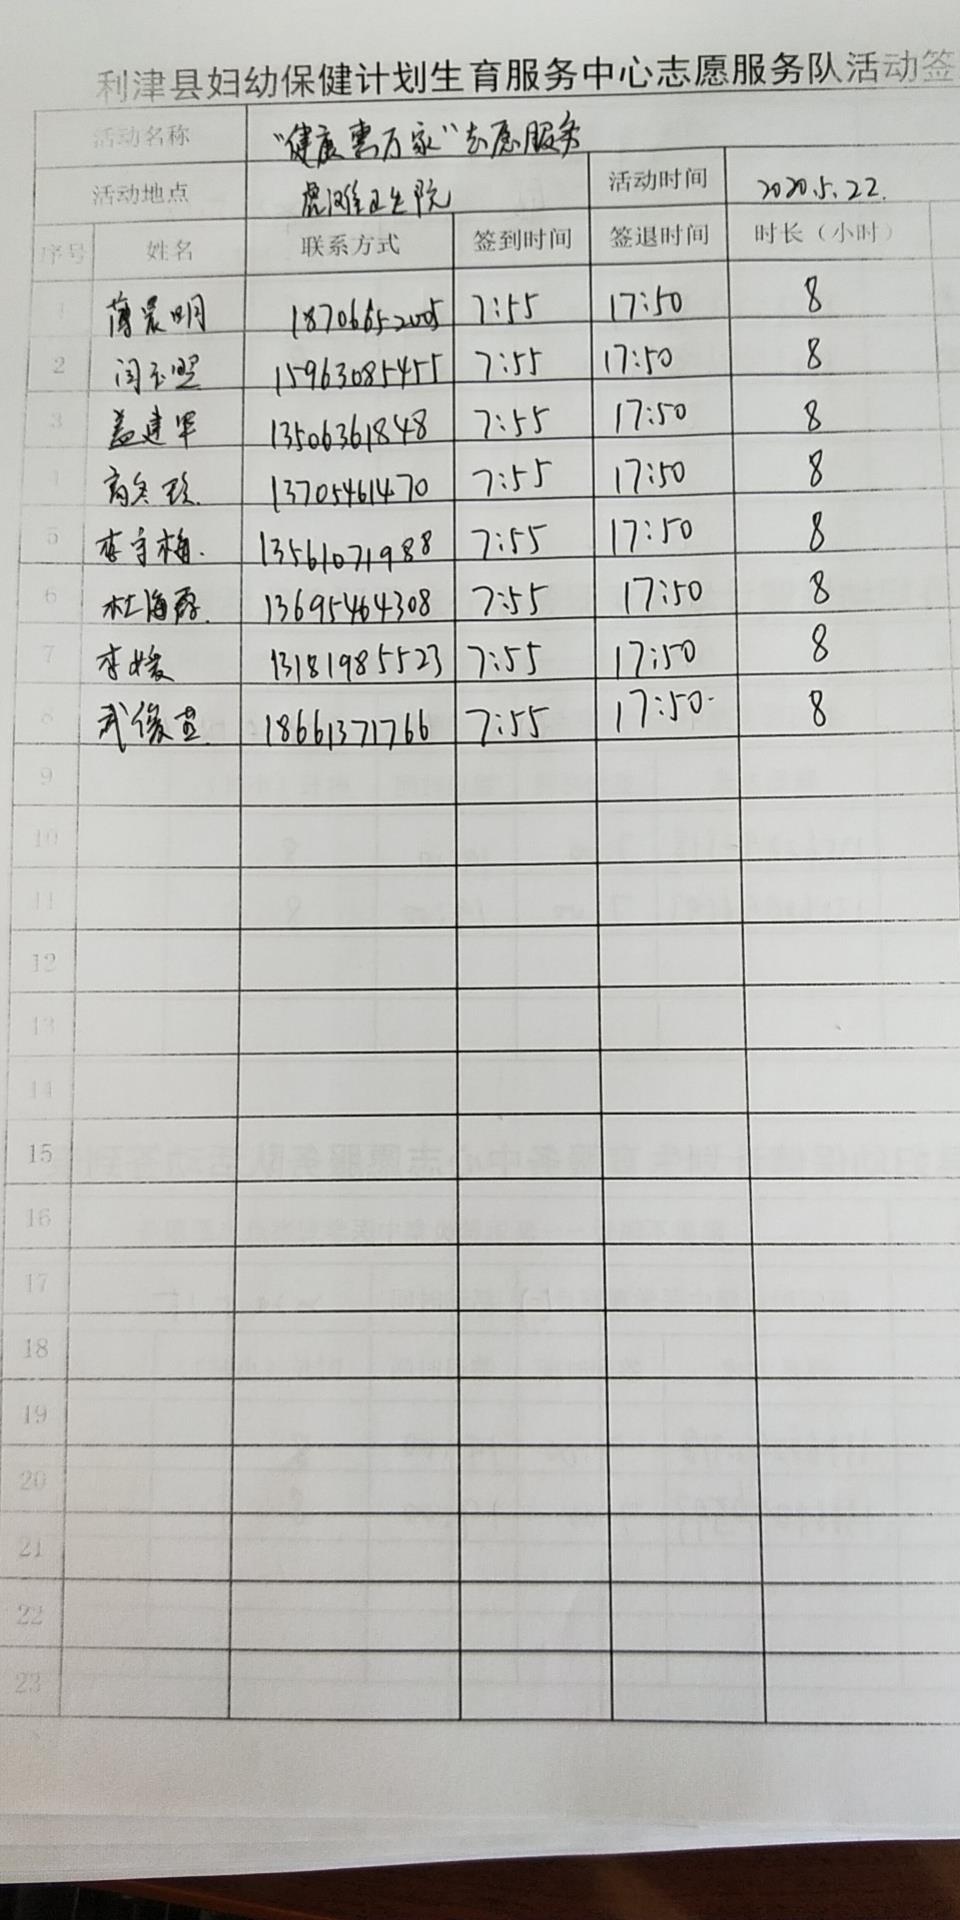 利津县妇幼保健计划生育服务中心志愿服务队活动签
活动名称 “健康惠万家”志愿服务
活动地点 虎滩卫生院 活动时间 2020.5.22.
序号 姓名 联系方式 签到时间 签退时间 时长（小时）
1 薄晨明 18706652005 7:55 17:50 8
2 闫玉照 15963085455 7:55 17:50 8
3 盖建军 13506361848 7:55 17:50 8
4 13705461470 7:55 17:50 8
5 李守梅. 13561071988 7:55 17:50 8
6 杜海霞. 13695464308 7:55 17:50 8
7 李媛 13181985523 7:55 17:50 8
8 武俊英. 18661371766 7:55 17:50 8
9
10
11
12
13
14
15
16
17
18
19
20
21
22
23